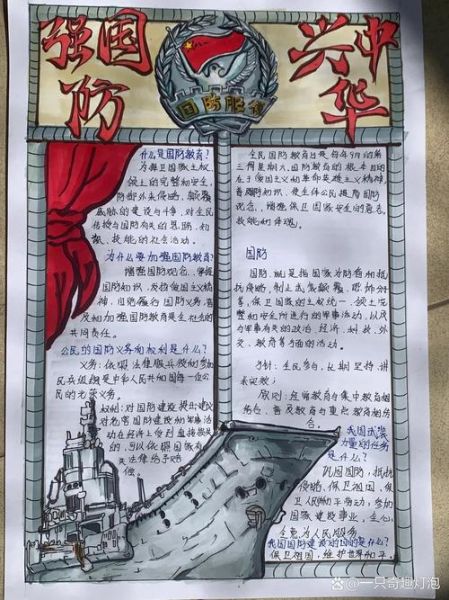 强国防
兴中华
国防
什么是国防教育?
为捍卫国家主权、
领土的完整和安全,
防御外来侵略、颠覆
威胁的建设与斗争,对全民
传授与国防有关的思想、知
识、技能的社会活动。
为什么要加强国防教育?
增强国防观念、掌握
国防知识、发扬爱国主义精
神,自觉履行国防义务,普
及和加强国防教育是全社会的
共同责任。
公民的国防义务和权利是什么?
义务:依照法律服兵役和参加
民兵组织是中华人民共和国每一位公
民的光荣义务。
权利:对国防建设提出建议
对危害国防建设和军事活
动在经济上受到直接损失
的,可以依照国家有
关法律给予补
偿。
全民国防教育日是每年9月的第
三个星期六。国防教育的根本目的
在于爱国主义和革命英雄主义精神,
普及国防知识,是全体公民提高国防
观念,增强保卫国家安全的意志、
技能和体魂。
国防
国防,就是指国家为防备和抵
抗侵略,制止武装颠覆,
保卫国家的主权统一、领土完
整和安全所进行的军事活动,以及
与军事有关的政治、经济、科教、外
交、教育等方面的活动。
方针:全民参与,长期坚持,讲
求实效;
原则:经常教育与集中教育相
结合,普及教育与重点教育相结
合。
我国武装
力量的任务
是什么?
巩固国防,抵抗
侵略、保卫祖国、保
卫人民和平劳动,参加
国家建设事业,全心
全意为人民服务
我国国防建设的目的是什么?
保卫祖国,维护世界和平
@一只奇趣灯泡